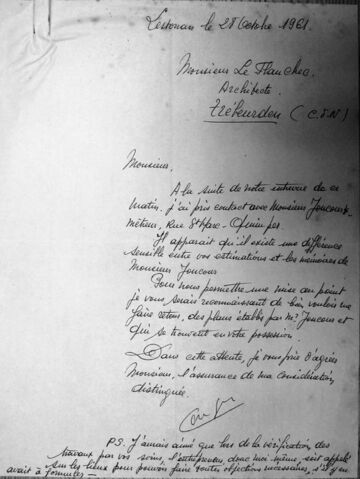 Lesconan le 28 Octobre 1961.
Monsieur Le Flanchec.
Architecte
Trébeurden (C.d.N)
Monsieur,
A la suite de notre entrevue de ce
matin, j'ai pris contact avec Monsieur Joncour
métreur, Rue St Marc - Quimper.
Il apparait qu'il existe une différence
sensible entre vos estimations et les mémoires de
Monsieur Joncour
Pour nous permettre une mise au point
je vous serais reconnaissant de bien vouloir me
faire retour, des plans établis par Mr Joncour et
qui se trouvent en votre possession.
Dans cette attente, je vous prie d'agréer
Monsieur, l'assurance de ma considération
distinguée.
P.S. J'aurais aimé que lors de la vérification des
travaux par vos soins, l'entrepreneur donc moi même, soit appelé
sur les lieux pour pouvoir faire toutes objections nécessaires, s'il y en
avait à formuler -